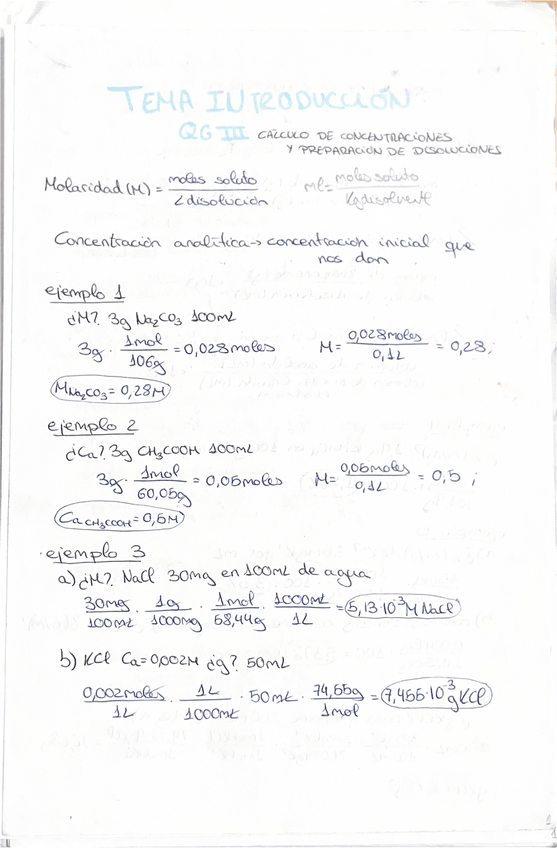 TEMA INTRODUCCIÓN
QG III CÁLCULO DE CONCENTRACIONES
Y PREPARACIÓN DE DISOLUCIONES
Molaridad (M) = moles soluto / L disolución m = moles soluto / Kg disolvente
Concentración analítica → concentración inicial que
nos dan
ejemplo 1
¿M? 3g Na2CO3 100mL
3g · 1mol / 106g = 0,028moles M = 0,028moles / 0,1L = 0,28;
M Na2CO3 = 0,28M
ejemplo 2
¿Ca? 3g CH3COOH 100mL
3g · 1mol / 60,05g = 0,05moles M = 0,05moles / 0,1L = 0,5;
Ca CH3COOH = 0,5M
· ejemplo 3
a) ¿M? NaCl 30mg en 100mL de agua
30mg / 100mL · 1g / 1000mg · 1mol / 58,44g · 1000mL / 1L = 5,13·10⁻³ M NaCl
b) KCl Ca=0,002M ¿g? 50mL
0,002moles / 1L · 1L / 1000mL · 50mL · 74,55g / 1mol = 7,455·10⁻³ g KCl
1